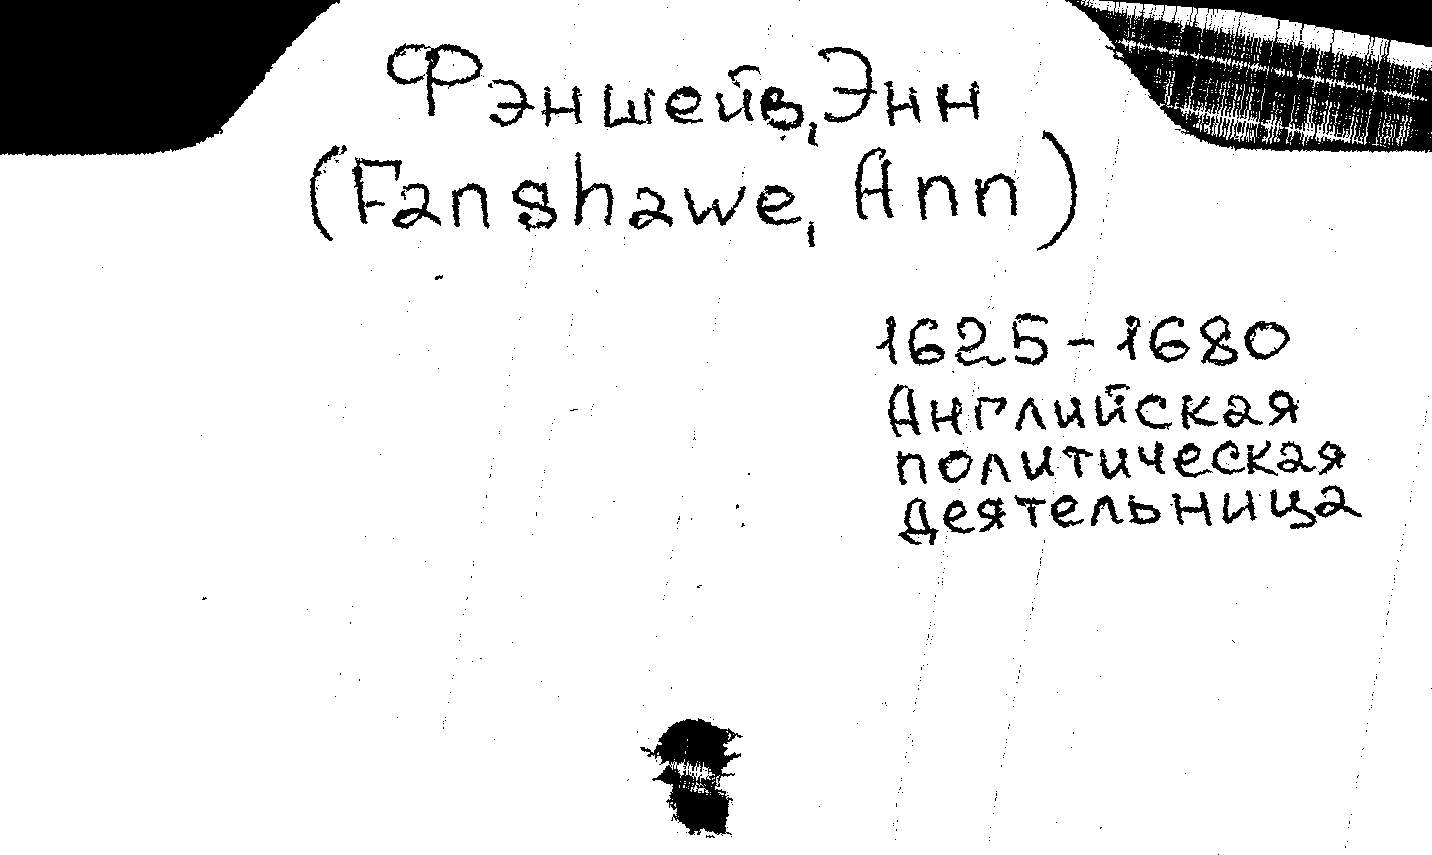 Фэншейв, Энн
(Fanshawe, Ann)
1625-1680
Английская
политическая
деятельница